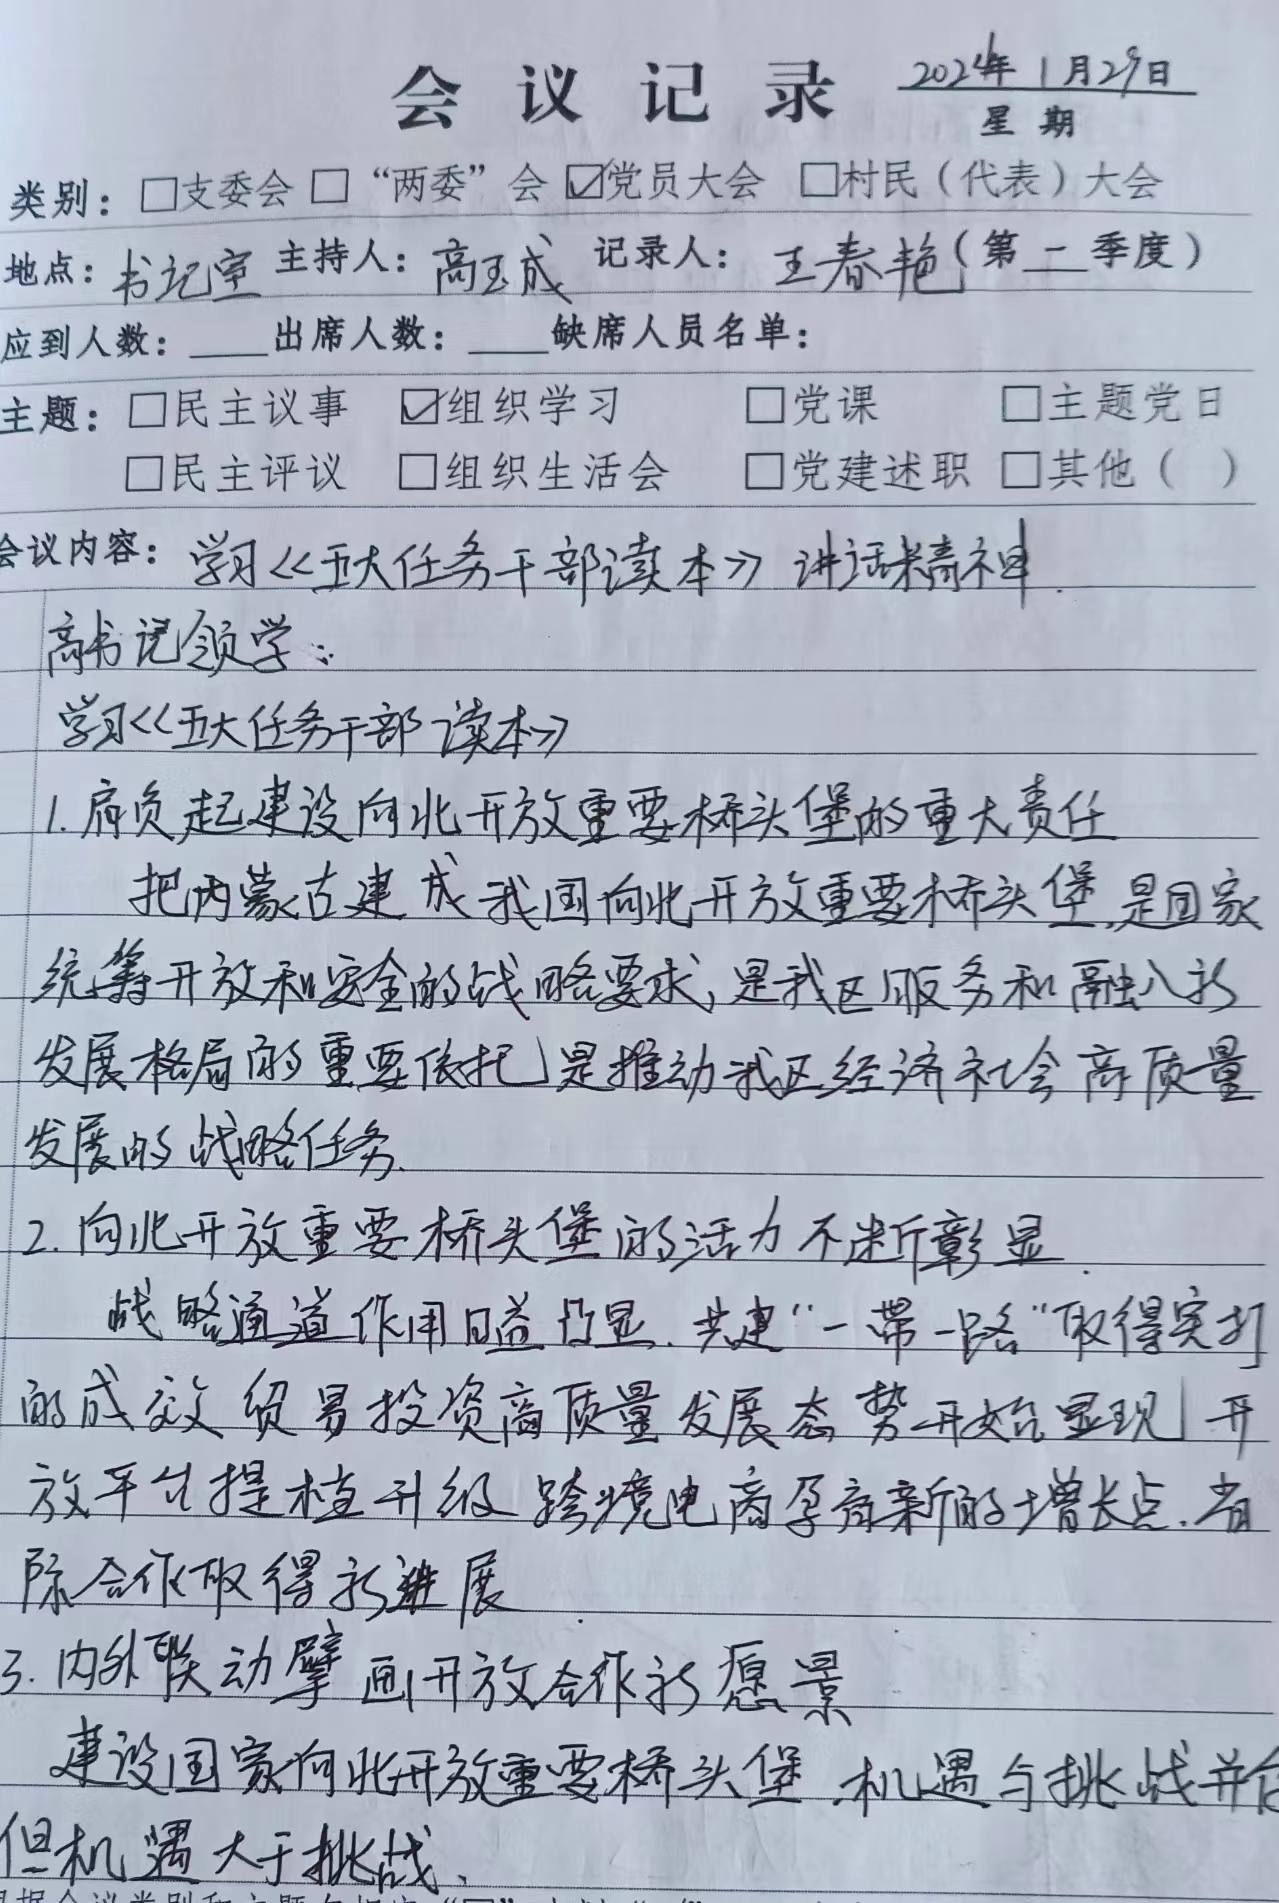 会议记录 2024年1月29日
星期
类别：□支委会 □“两委”会 ☑党员大会 □村民（代表）大会
地点：书记室 主持人：高玉成 记录人：王春艳（第一季度）
应到人数：____出席人数：____缺席人员名单：
主题：□民主议事 ☑组织学习 □党课 □主题党日
□民主评议 □组织生活会 □党建述职 □其他（ ）
会议内容：学习《五大任务干部读本》讲话精神.
高书记领学：
学习《五大任务干部读本》
1.肩负起建设向北开放重要桥头堡的重大责任
把内蒙古建成我国向北开放重要桥头堡,是国家
统筹开放和安全的战略要求,是我区服务和融入新
发展格局的重要依托,是推动我区经济社会高质量
发展的战略任务.
2.向北开放重要桥头堡的活力不断彰显.
战略通道作用日益凸显.共建“一带一路”取得实打
的成效 贸易投资高质量发展态势开始显现,开
放平台提档升级 跨境电商孕育新的增长点.省
际合作取得新进展.
3.内外联动擘画开放合作新愿景
建设国家向北开放重要桥头堡.机遇与挑战并存
但机遇大于挑战.